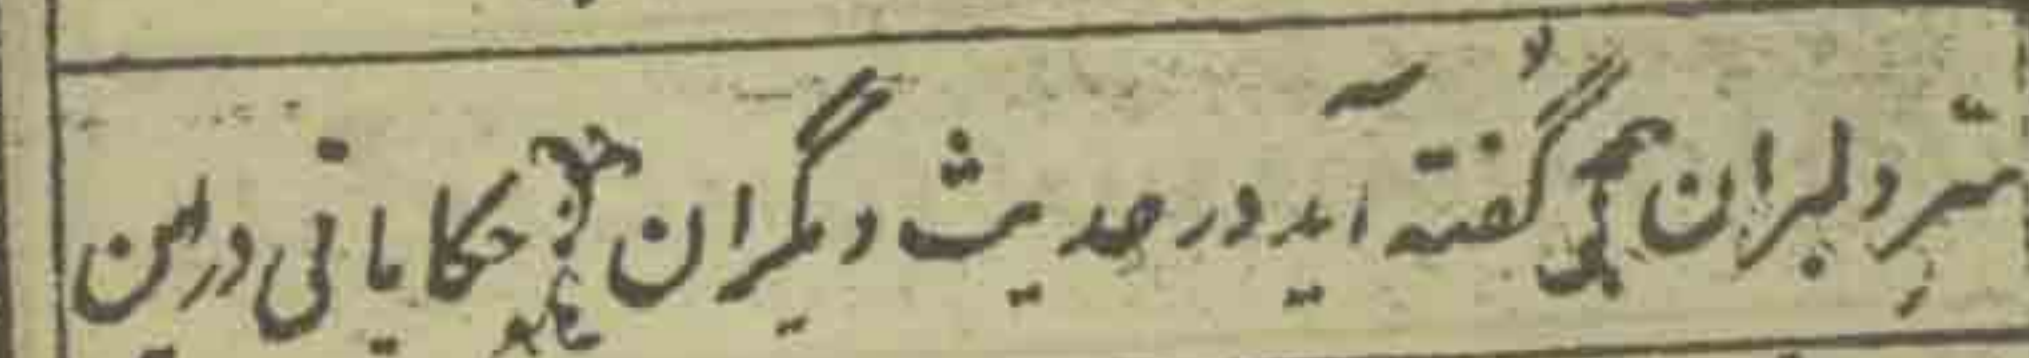 سر دلبران همی گفته آید در حدیث دیگران حکایاتی در این